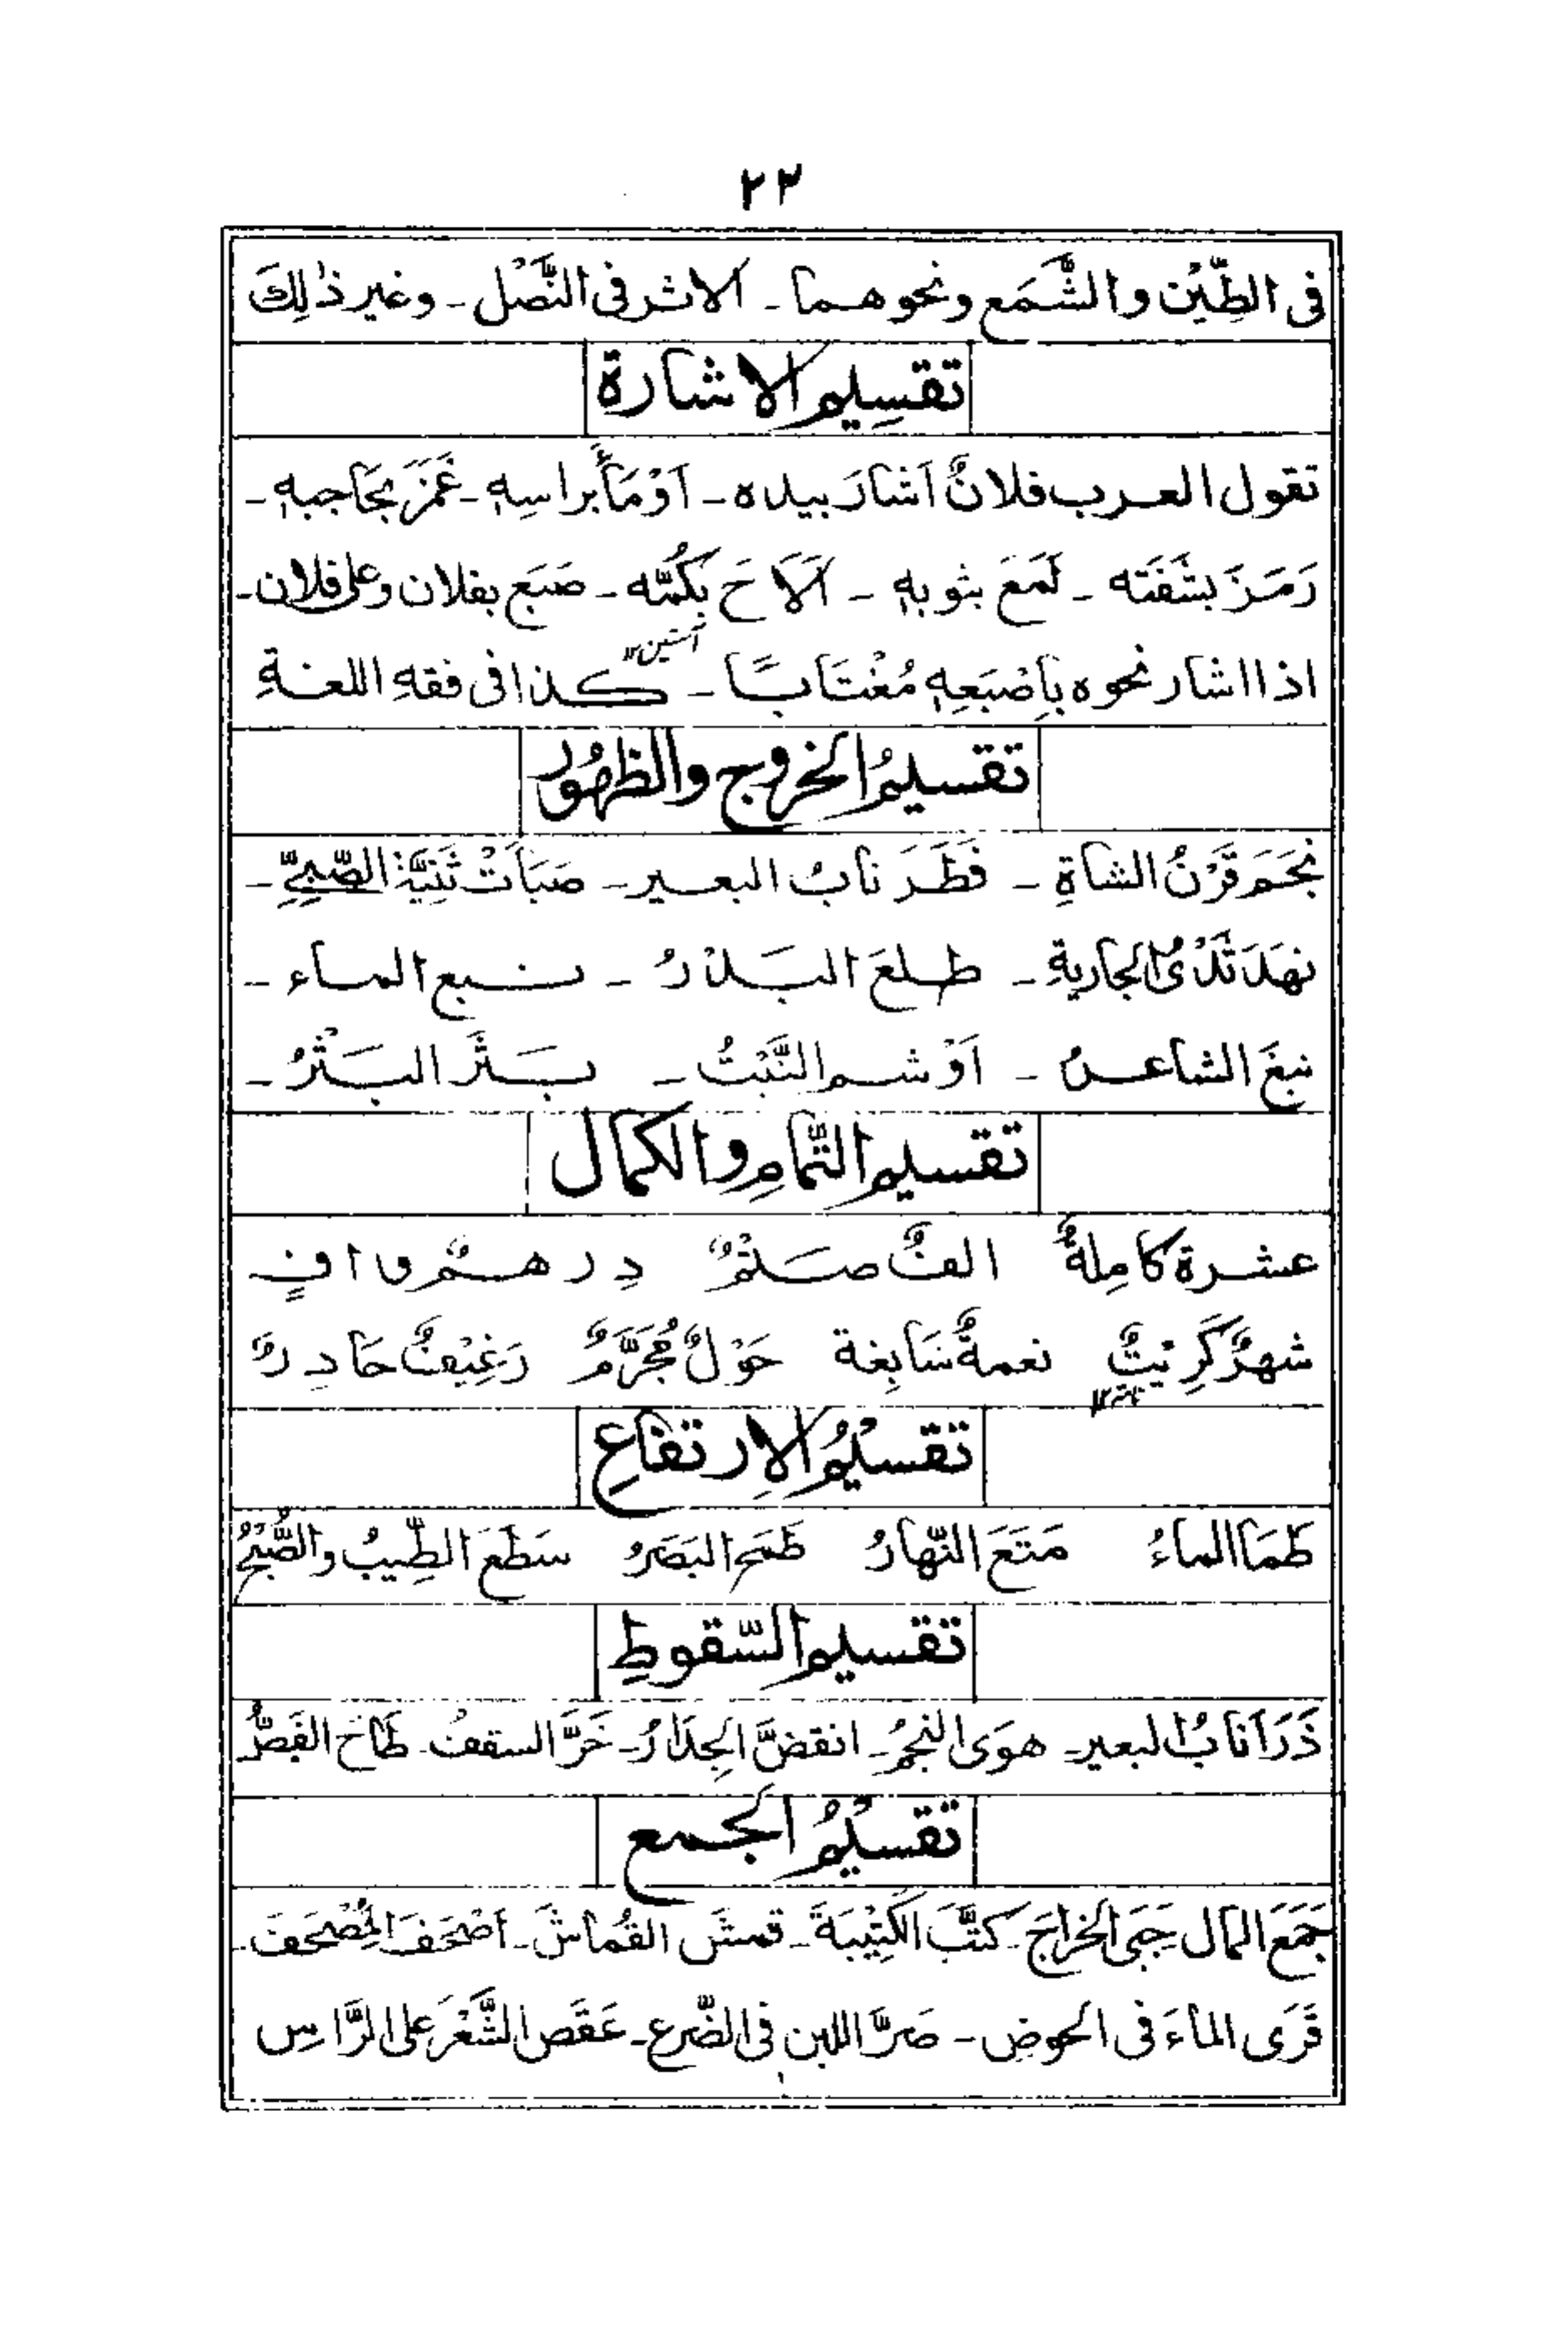 ٢٣
فى الطِّيْن والشَّمَع ونحوهما ـ الاثر فى النَّصْل ـ وغير ذٰلِكَ
تقسِيم الاشارة
تقول العرب فلانٌ اَشارَ بيده ـ اَوْمَأَ براسِهٖ ـ غَمَزَ بحَاجبهٖ ـ
رَمَزَ بشَفَته ـ لَمَعَ بثوبهٖ ـ اَلَاحَ بكُمِّه ـ صَبَع بفلان وعلى فلان ـ
آستین۱۲
اذا اشار نحوه بِاِصْبَعِهٖ مُغْتَابًا ـ كذا فى فقهِ اللغةِ
تقسيمُ الخروج والظهُور
نَجَمَ قَرْنُ الشاةِ ـ فَطَرَ نابُ البعير ـ صَبَأَتْ ثَنِيَّةُ الصَّبِيِّ ـ
نهَدَ ثَدْىُ الجاريةِ ـ طلعَ البَدْرُ ـ نبع الماء ـ
نبغَ الشاعرُ ـ اَوْشم النَّبْتُ ـ بَثَرَ البَثْرُ ـ
تقسيم التَّمامِ والكمال
عشرة كامِلةٌ الفٌ صَتْمٌ دِرهمٌ وافٍ
شهرٌ كَرِيتٌ نعمةٌ سَابِغة حَوْلٌ مُجَرَّمٌ رَغِيْفٌ حَادِرٌ
تقسيْمُ الاِرتفاعِ
طَمَا الماءُ مَتَعَ النَّهارُ طَمَح البَصَرُ سَطَعَ الطِّيبُ والصُّبْحُ
تقسيم السّقوطِ
ذَرَا نابُ البعير ـ هوَى النجمُ ـ انقضَّ الجِدَارُ ـ خَرَّ السقفُ ـ طَاحَ الفَصُّ
تقسيْمُ الجمع
جَمَعَ المال جَبَى الخراجَ ـ كتَّبَ الكَتِيْبَةَ ـ قمشَ القُماشَ ـ اَصْحَفَ المُصْحَفَ ـ
قَرَى الماءَ فى الحوضِ ـ صَرَّ اللبن فى الضّرع ـ عَقَص الشَّعْرَ على الرَّاسِ